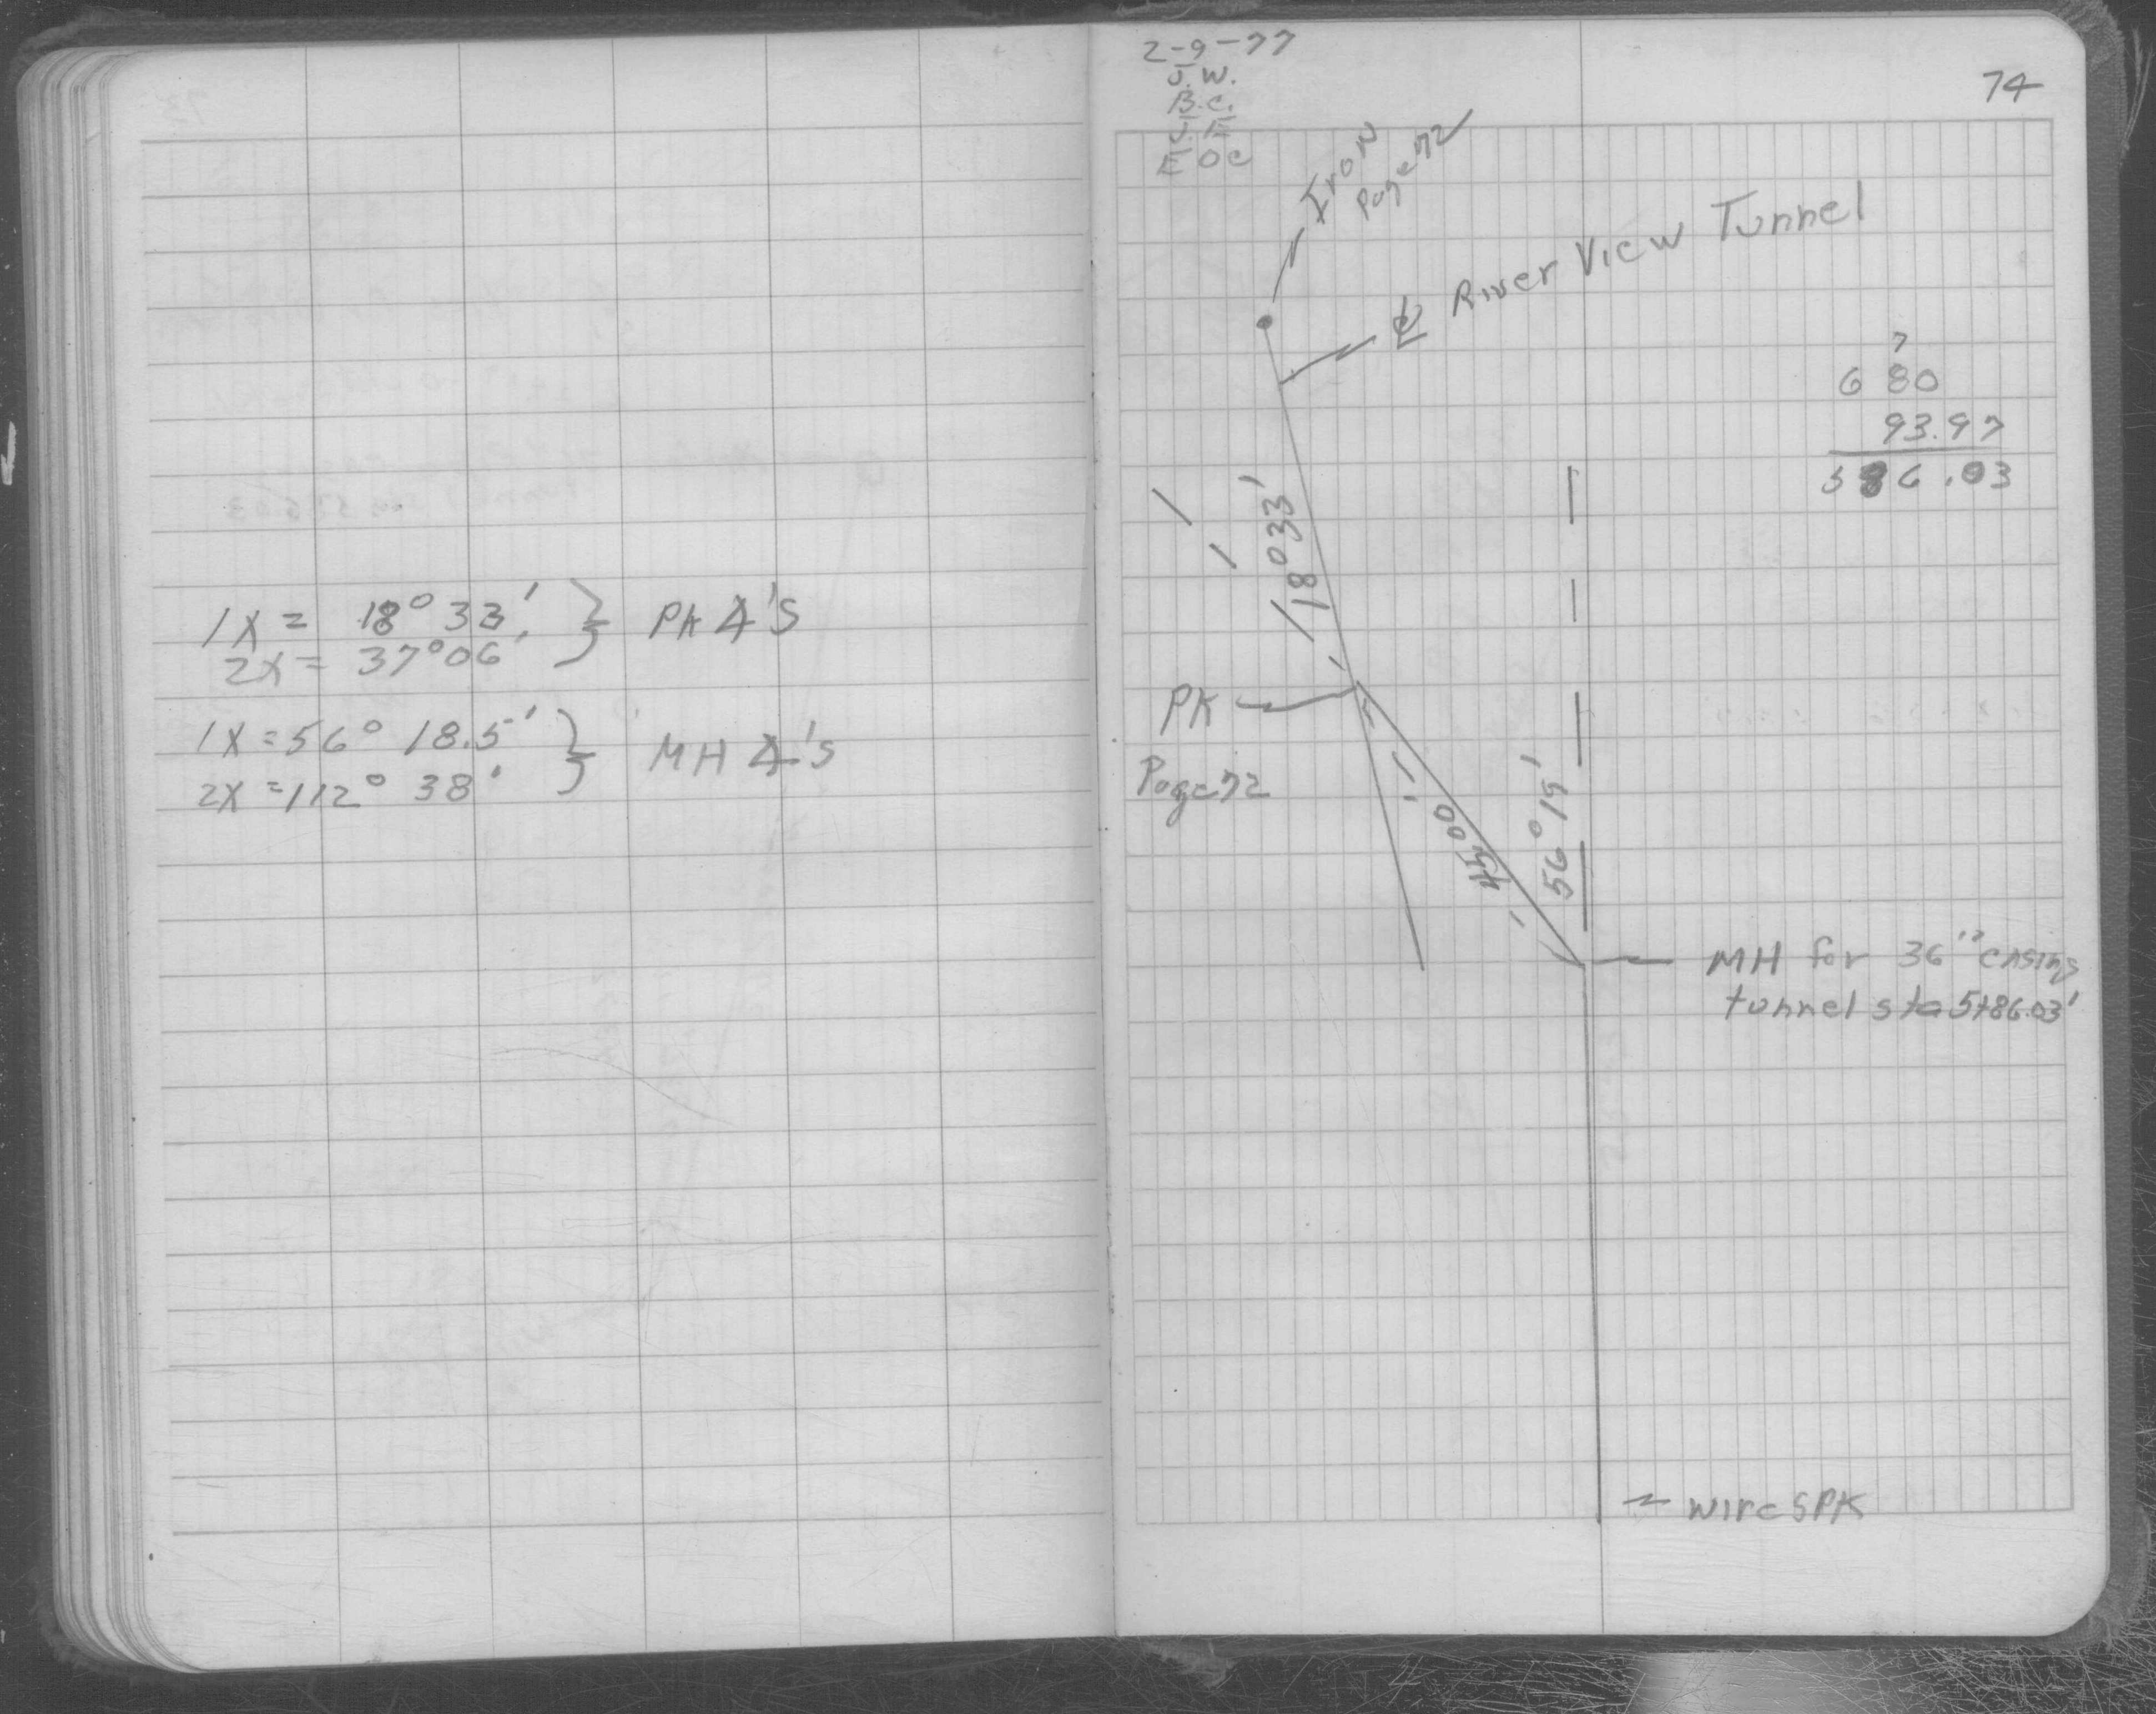 1X = 18° 33'
2X = 37° 06' } PK ∡'S
1X = 56° 18.5'
2X = 112° 38' } MH ∡'S
2-9-77
J.W.
B.C.
E OC
74
Iron
Page 72
℄ River View Tunnel
7
6 80
93.97
586.03
18°33'
PK
Page 72
56°19'
MH for 36" casing
tunnel sta 5+86.03'
wire SPK